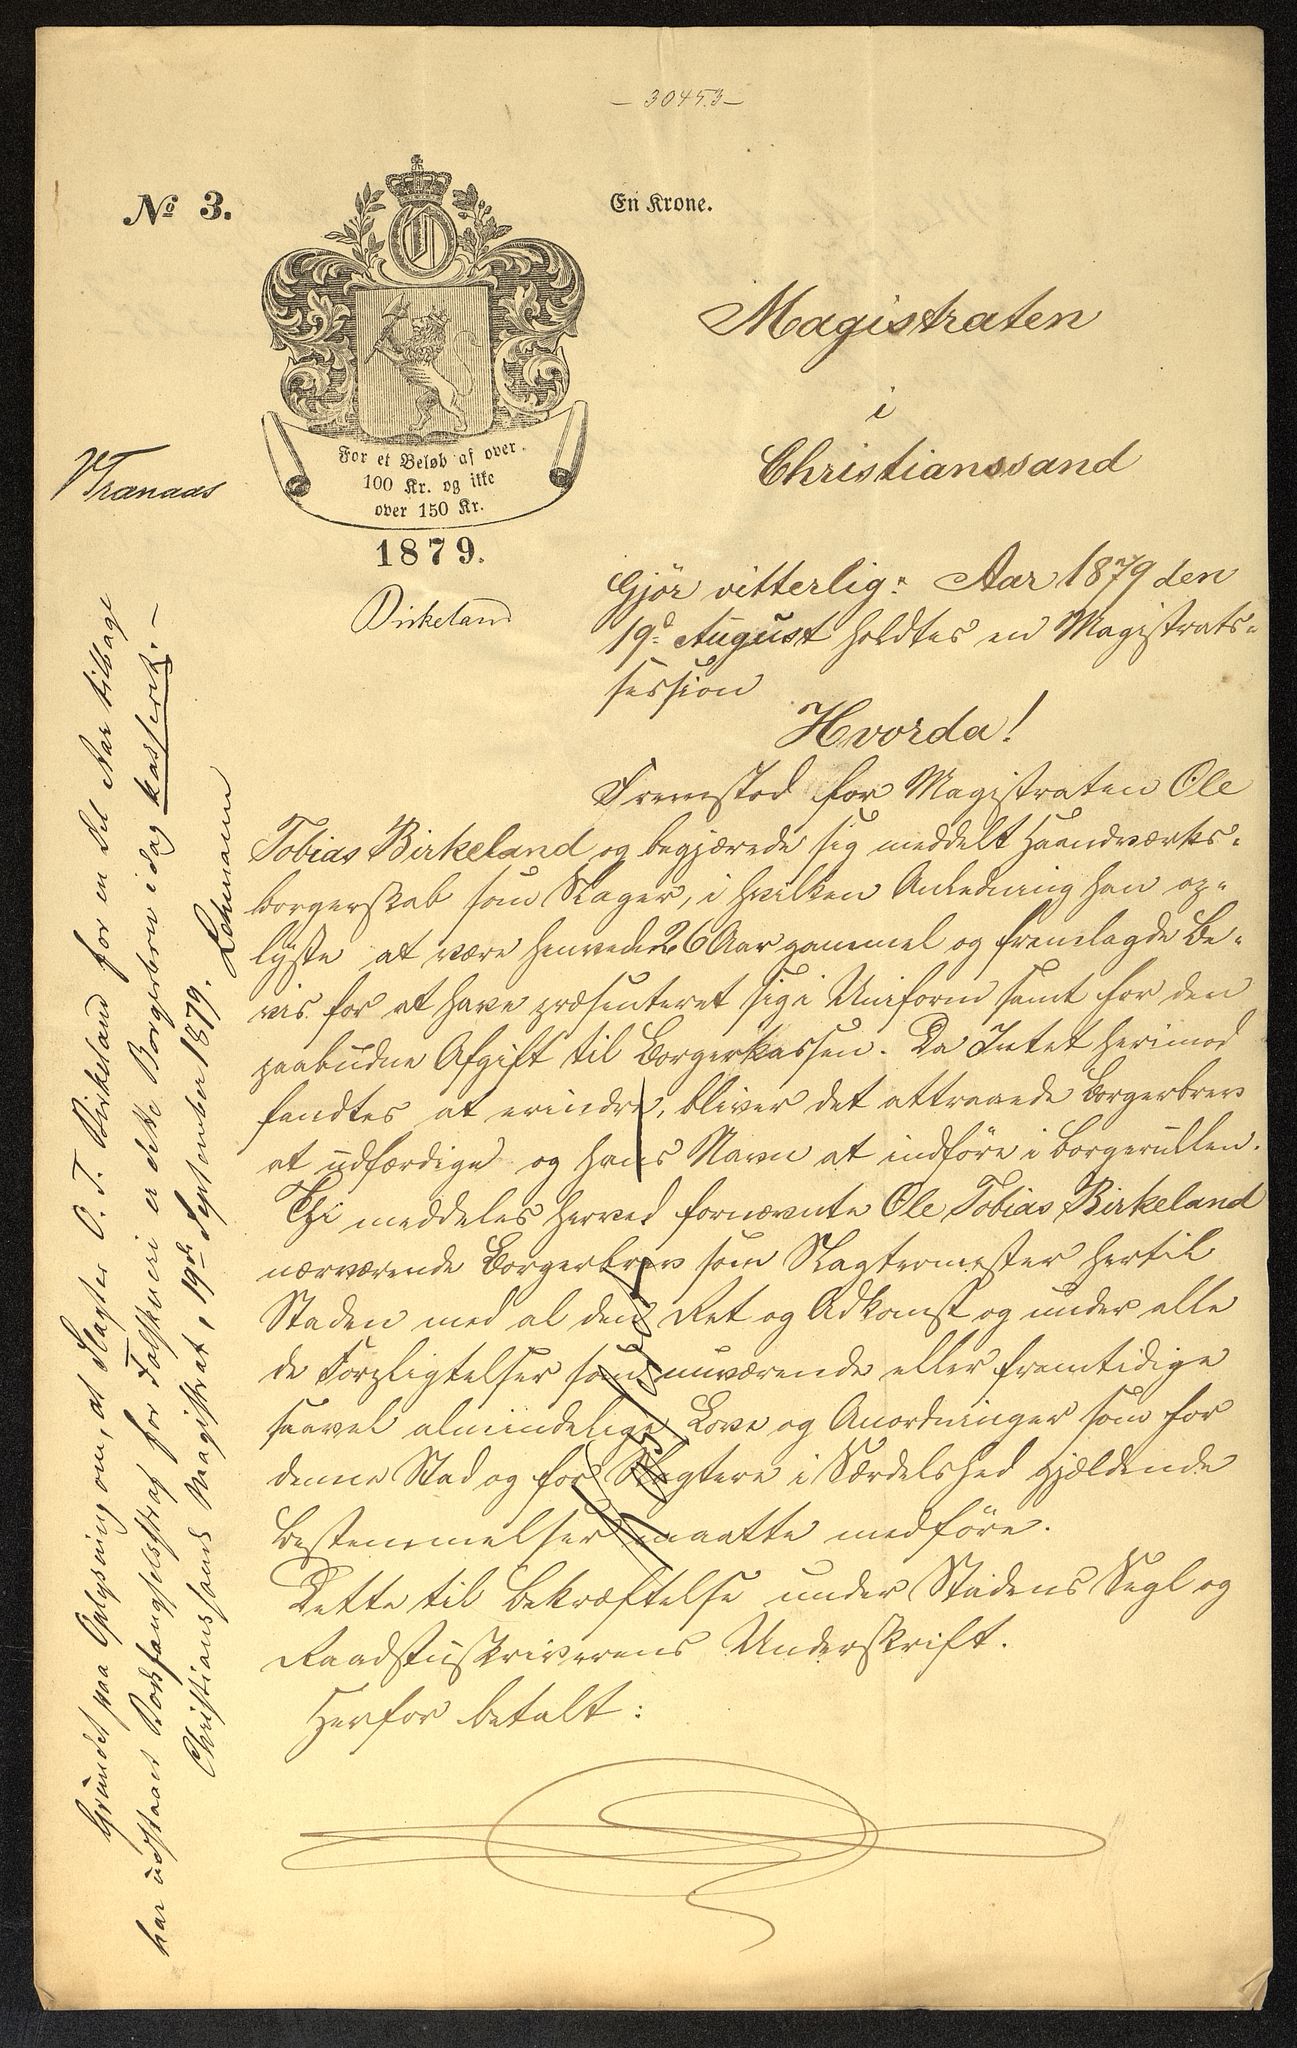 - 30453 -
No 3.
En Krone.
For et Beløb af over
100 Kr. og ikke
over 150 Kr.
1879.
VTranaas
Birkeland
Magistraten
i
Christianssand
Gjör vitterlig: Aar 1879 den
19d August holdtes en Magistrats-
session
Hvorda!
Fremstod for Magistraten Ole
Tobias Birkeland og begjærede sig meddelt Haandværks-
borgerskab som Slagter, i hvilken Anledning han op-
lyste at være henved 26 Aar gammel og fremlagde Be-
vis for at have præsenteret sig i Uniform samt for den
paabudne Afgift til Borgerkassen. Da Intet herimod
fandtes at erindre, bliver det attraaede Borgerbrev
at udfærdige og hans Navn at indföre i Borgerrullen.
Thi meddeles herved fornævnte Ole Tobias Birkeland
nærværende Borgerbrev som Slagtermester hertil
Staden med al den Ret og Adkomst og under alle
de Forpligtelser som nuværende eller fremtidige
saavel almindelige Love og Anordninger som for
denne Stad og for Slagtere i Særdelshed gjældende
Bestemmelser maatte medföre.
Dette til Bekræftelse under Stadens Segl og
Raadstuskriverens Underskrift.
Herfor betalt:
Grundet paa Oplysning om, at Slagter O. T. Birkeland for en Del Aar tilbage
har udstaaet Bodsfængselsstraf for Falskneri er dette Borgerbrev idag kasseret. -
Christianssands Magistrat, 19de September 1879.
Lehmann